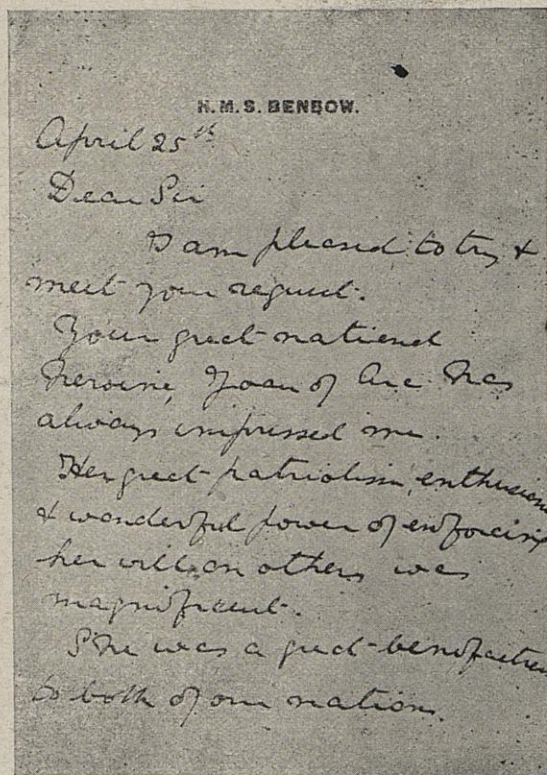 H.M.S. BENBOW.
April 25th
Dear Sir
I am pleased to try &
meet your request.
Your great national
heroine, Joan of Arc has
always impressed me.
Her great patriotism, enthusiasm
& wonderful power of enforcing
her will on others was
magnificent.
She was a great benefactress
to both of our nations.